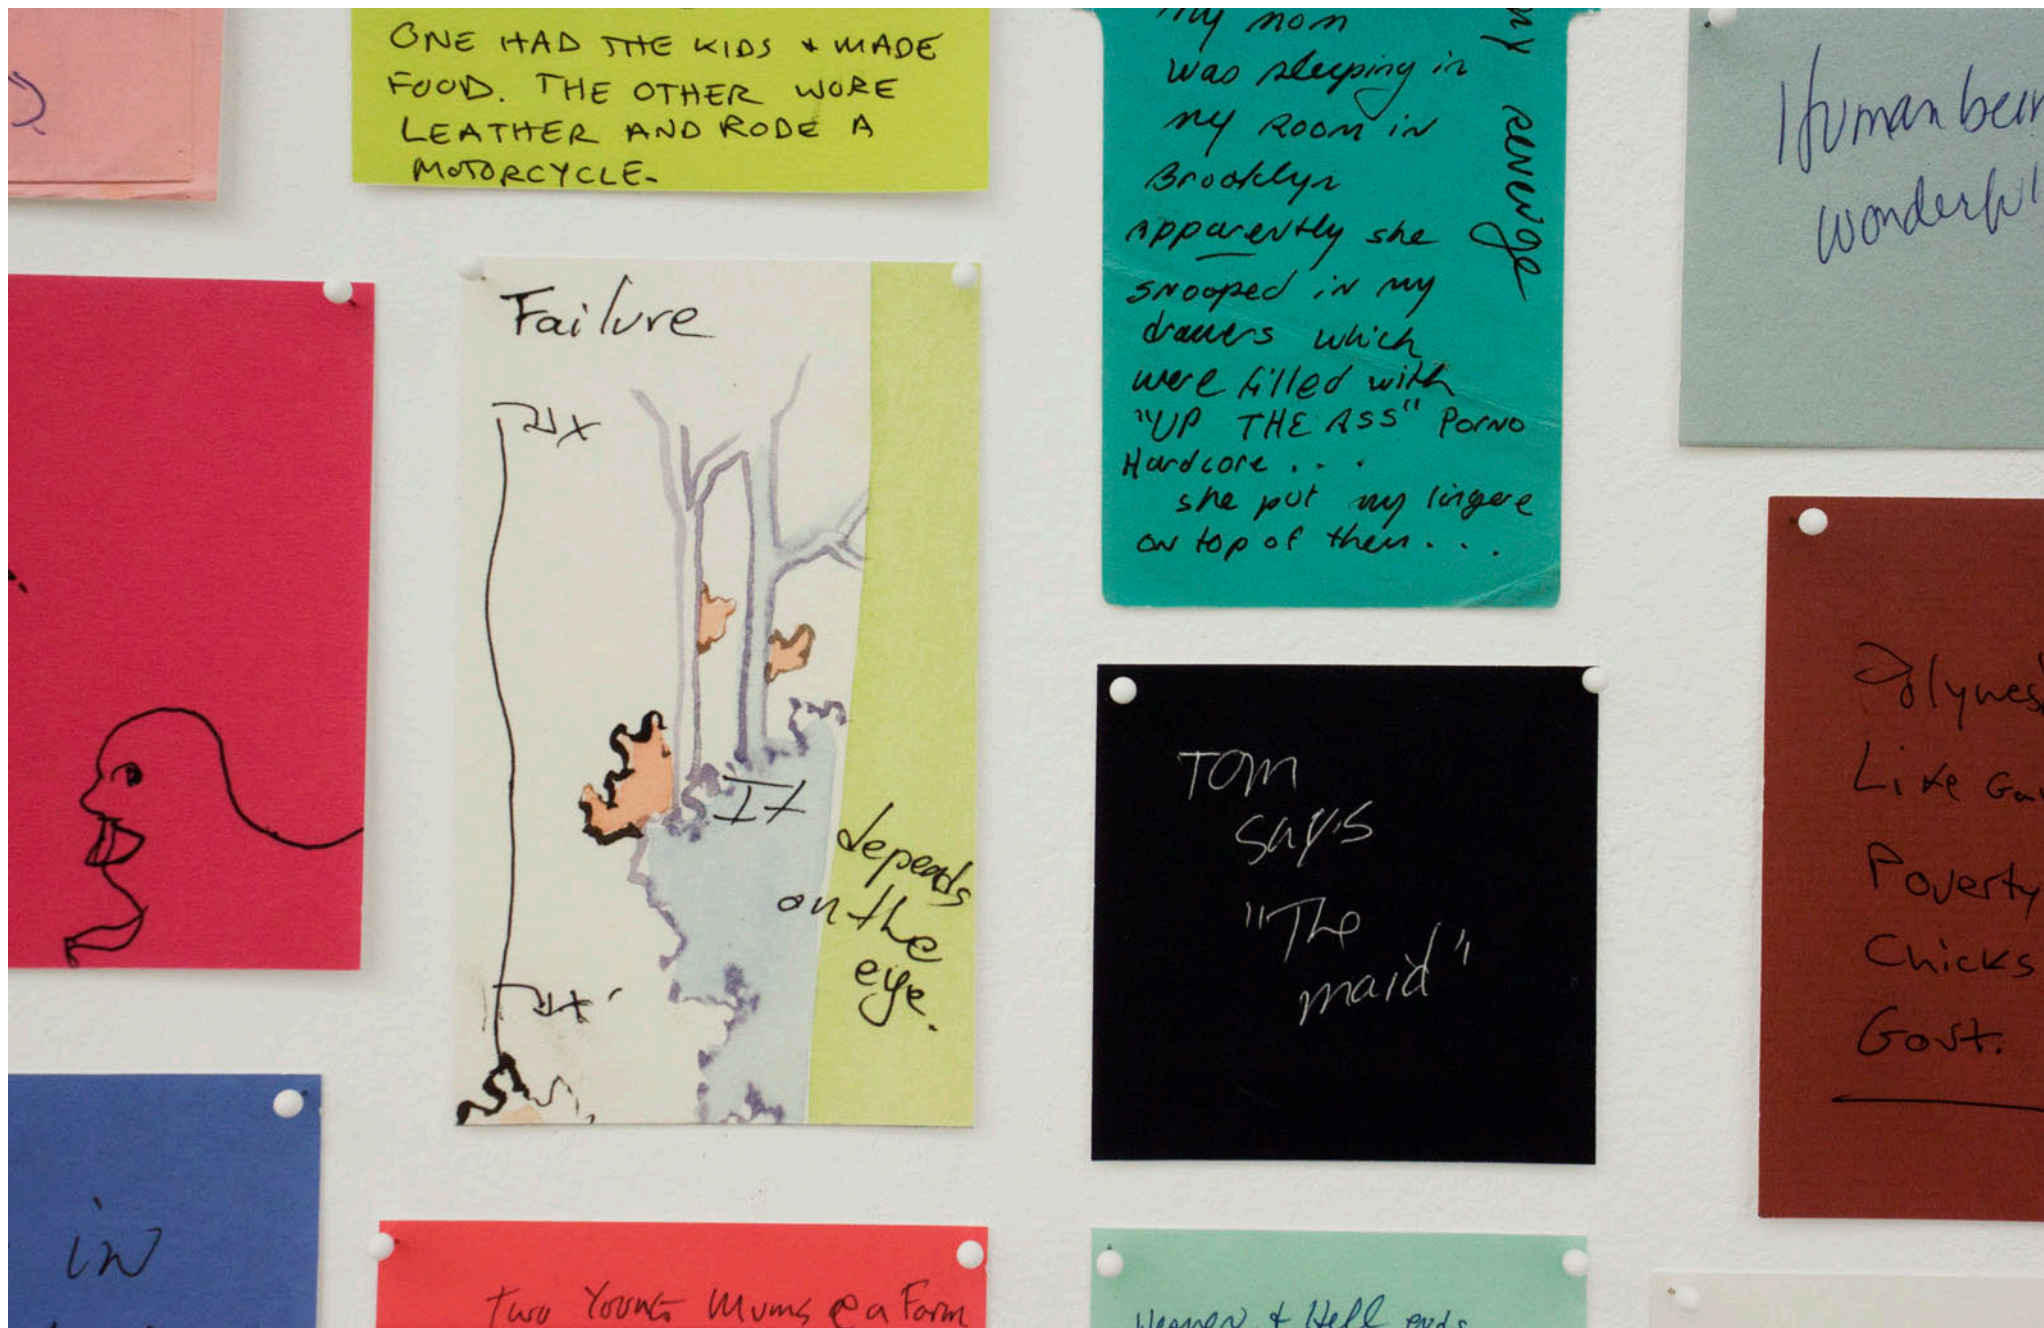 ONE HAD THE KIDS + MADE
FOOD. THE OTHER WORE
LEATHER AND RODE A
MOTORCYCLE-
my mom
was sleeping in
my room in
Brooklyn
apparently she
snooped in my
drawers which
were filled with
"UP THE ASS" PORNO
Hardcore . . .
she put my lingere
on top of them . . .
my revenge
Human bein
wonderful
Failure
It
depends
on the
eye.
Tom
says
"The
maid"
Polynes
Like Gau
Poverty
Chicks
Govt.
in
Two Young Mums @ a Farm
Women + Hell ends